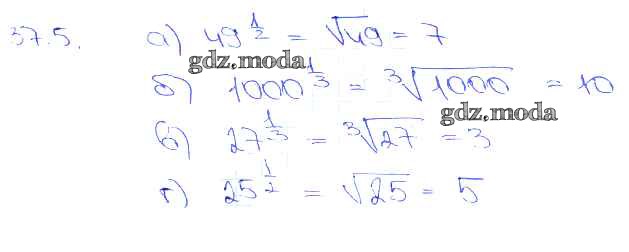 37.5. а) 49^(1/2) = √49 = 7
gdz.moda
б) 1000^(1/3) = ∛1000 = 10
gdz.moda
в) 27^(1/3) = ∛27 = 3
г) 25^(1/2) = √25 = 5